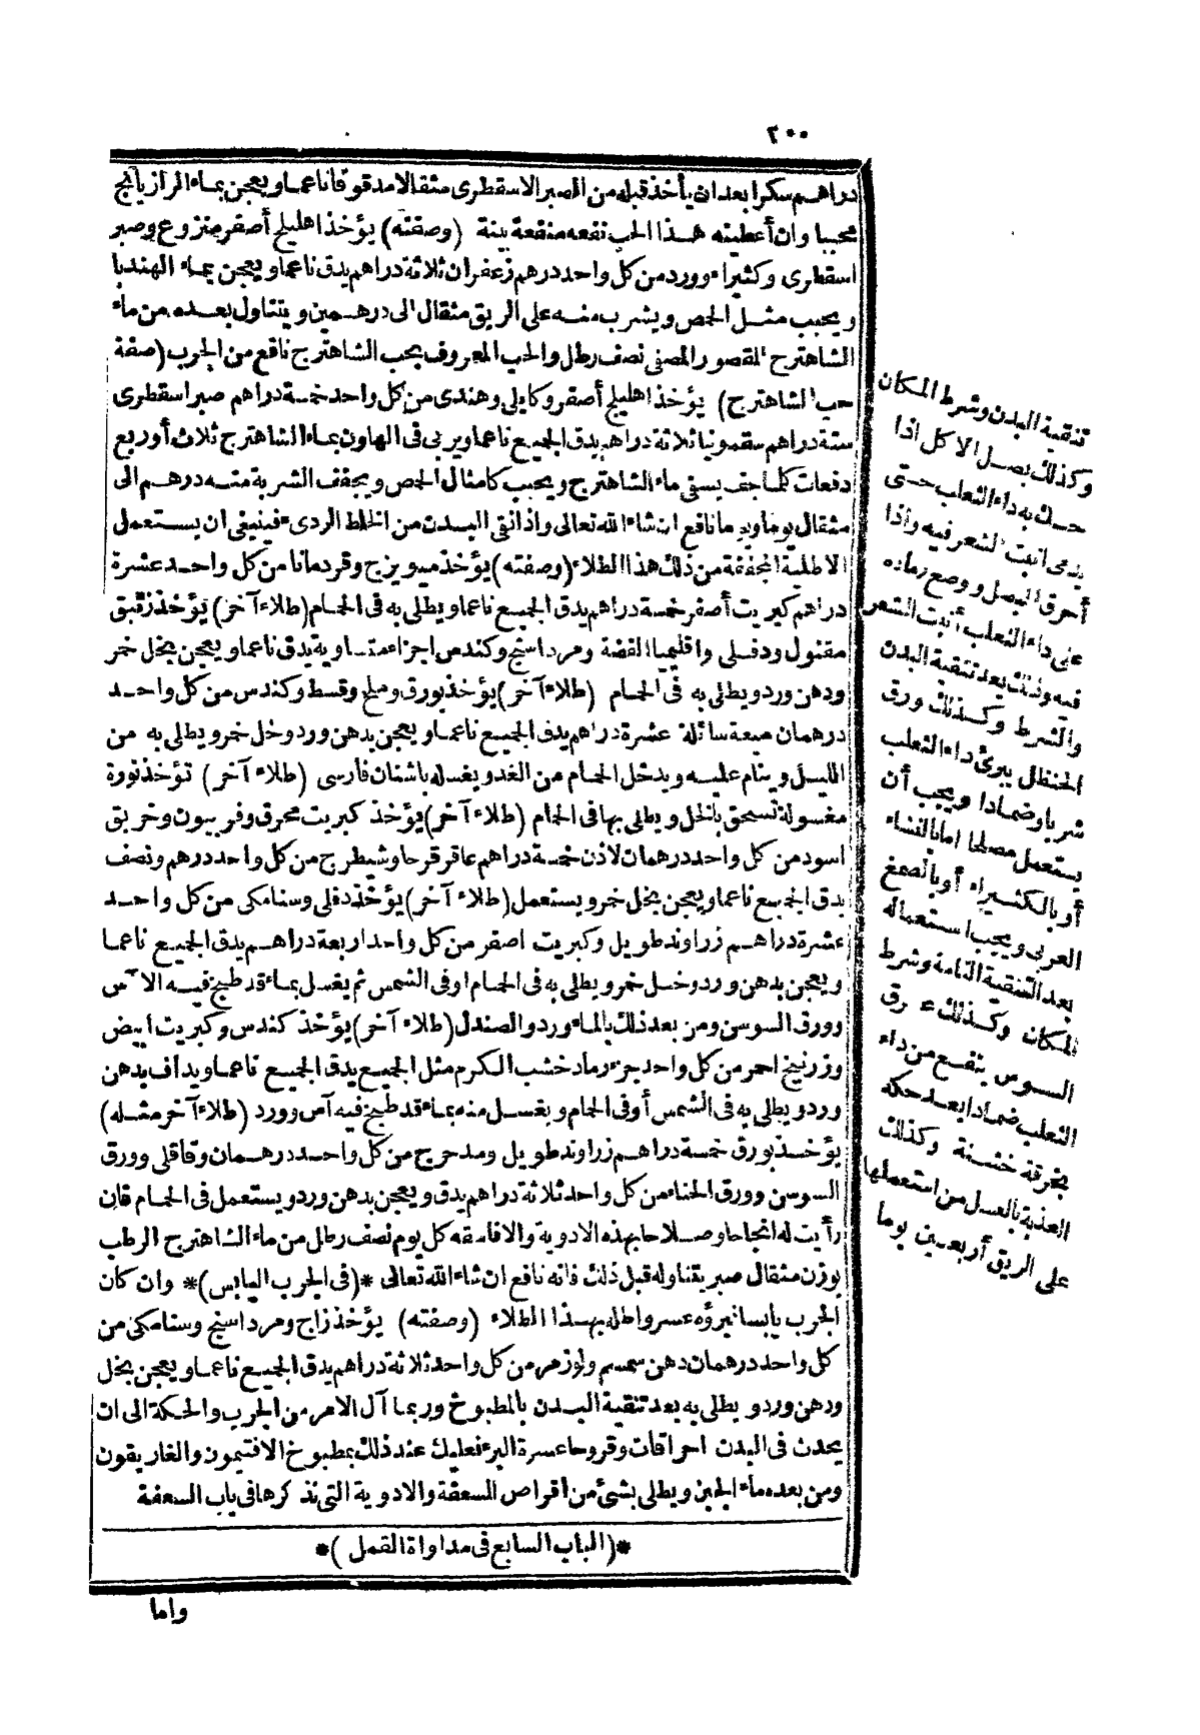 ٢٠٠
دراهم سكرا بعد ان يأخذ قبله من الصبر الاسقطرى مثقالا مدقوقا ناعما ويعجن بماء الرازيانج
محببا وان أعطيته هذا الحب نفعه منفعة بينة (وصفته) يؤخذ اهليلج أصفر منزوع وصبر
اسقطرى وكثيراء وورد من كل واحد درهم زعفران ثلاثة دراهم يدق ناعما ويعجن بماء الهندبا
ويحبب مثل الحمص ويشرب منه على الريق مثقال الى درهمين ويتناول بعده من ماء
الشاهترج المقصور المصفى نصف رطل والحب المعروف بحب الشاهترج نافع من الجرب (صفة
حب الشاهترج) يؤخذ اهليلج أصفر وكابلى وهندى من كل واحد خمسة دراهم صبر اسقطرى
ستة دراهم سقمونيا ثلاثة دراهم يدق الجميع ناعما ويربى فى الهاون بماء الشاهترج ثلاث أوربع
دفعات كلما جف يسقى ماء الشاهترج ويحبب كامثال الحمص ويجفف الشربة منه درهم الى
مثقال يوما ويوما نافع ان شاء الله تعالى واذا نقى البدن من الخلط الردىء فينبغى ان يستعمل
الاطلية المجففة من ذلك هذا الطلاء (وصفته) يؤخذ ميويزج وقردمانا من كل واحد عشرة
دراهم كبريت أصفر خمسة دراهم يدق الجميع ناعما ويطلى به فى الحمام (طلاء آخر) يؤخذ زئبق
مقتول ودفلى واقليميا الفضة ومرداسنج وكندس اجزاء متساوية يدق ناعما ويعجن بخل خمر
ودهن ورد ويطلى به فى الحمام (طلاء آخر) يؤخذ بورق وملح وقسط وكندس من كل واحد
درهمان ميعة سائلة عشرة دراهم يدق الجميع ناعما ويعجن بدهن ورد وخل خمر ويطلى به من
الليل وينام عليه ويدخل الحمام من الغد ويغسله باشنان فارسى (طلاء آخر) تؤخذ نورة
مغسولة تسحق بالخل ويطلى بها فى الحمام (طلاء آخر) يؤخذ كبريت محرق وفربيون وخربق
اسود من كل واحد درهمان لاذن خمسة دراهم عاقر قرحا وشيطرج من كل واحد درهم ونصف
يدق الجميع ناعما ويعجن بخل خمر ويستعمل (طلاء آخر) يؤخذ دفلى وسنامكى من كل واحد
عشرة دراهم زراوند طويل وكبريت اصفر من كل واحد اربعة دراهم يدق الجميع ناعما
ويعجن بدهن ورد وخل خمر ويطلى به فى الحمام اوفى الشمس ثم يغسل بماء قد طبخ فيه الآس
وورق السوسن ومن بعد ذلك بالماء ورد والصندل (طلاء آخر) يؤخذ كندس وكبريت ابيض
وزرنيخ احمر من كل واحد جزء رماد خشب الكرم مثل الجميع يدق الجميع ناعما ويداف بدهن
ورد ويطلى به فى الشمس أوفى الحمام ويغسل منه بماء قد طبخ فيه آس وورد (طلاء آخر مثله)
يؤخذ بورق خمسة دراهم زراوند طويل ومدحرج من كل واحد درهمان وقاقلى وورق
السوسن وورق الحناء من كل واحد ثلاثة دراهم يدق ويعجن بدهن ورد ويستعمل فى الحمام فان
رأيت له انجاحا وصلاحا بهذه الادوية والا فاسقه كل يوم نصف رطل من ماء الشاهترج الرطب
بوزن مثقال صبر يتناوله قبل ذلك فانه نافع ان شاء الله تعالى *(فى الجرب اليابس)* وان كان
الجرب يابسا فبرؤه عسر واطله بهذا الطلاء (وصفته) يؤخذ زاج ومرداسنج وسنامكى من
كل واحد درهمان دهن سمسم ولوز مر من كل واحد ثلاثة دراهم يدق الجميع ناعما ويعجن بخل
ودهن ورد ويطلى به بعد تنقية البدن بالمطبوخ وربما آل الامر من الجرب والحكة الى ان
يحدث فى البدن احراقات وقروحا عسرة البرء فعليك عند ذلك بمطبوخ الافتيمون والغاريقون
ومن بعده ماء الجبن ويطلى بشئ من أقراص السعفة والادوية التى نذكرها فى باب السعفة
*(الباب السابع فى مداواة القمل)*
واما
تنقية البدن وشرط المكان
وكذلك بصل الاكل اذا
حك به داء الثعلب حتى
يدمى انبت الشعر فيه واذا
أحرق البصل ووضع رماده
على داء الثعلب أنبت الشعر
فيه وذلك بعد تنقية البدن
والشرط وكذلك ورق
الحنظل يبرئ داء الثعلب
شربا وضمادا ويجب أن
يستعمل مصلحا اما بالنشاء
أو بالكثيراء أو بالصمغ
العربى ويجب استعماله
بعد التنقية التامة وشرط
المكان وكذلك عرق
السوس ينفع من داء
الثعلب ضمادا بعد حكه
بخرقة خشنة وكذلك
العذبة بالعسل من استعملها
على الريق أربعين يوما